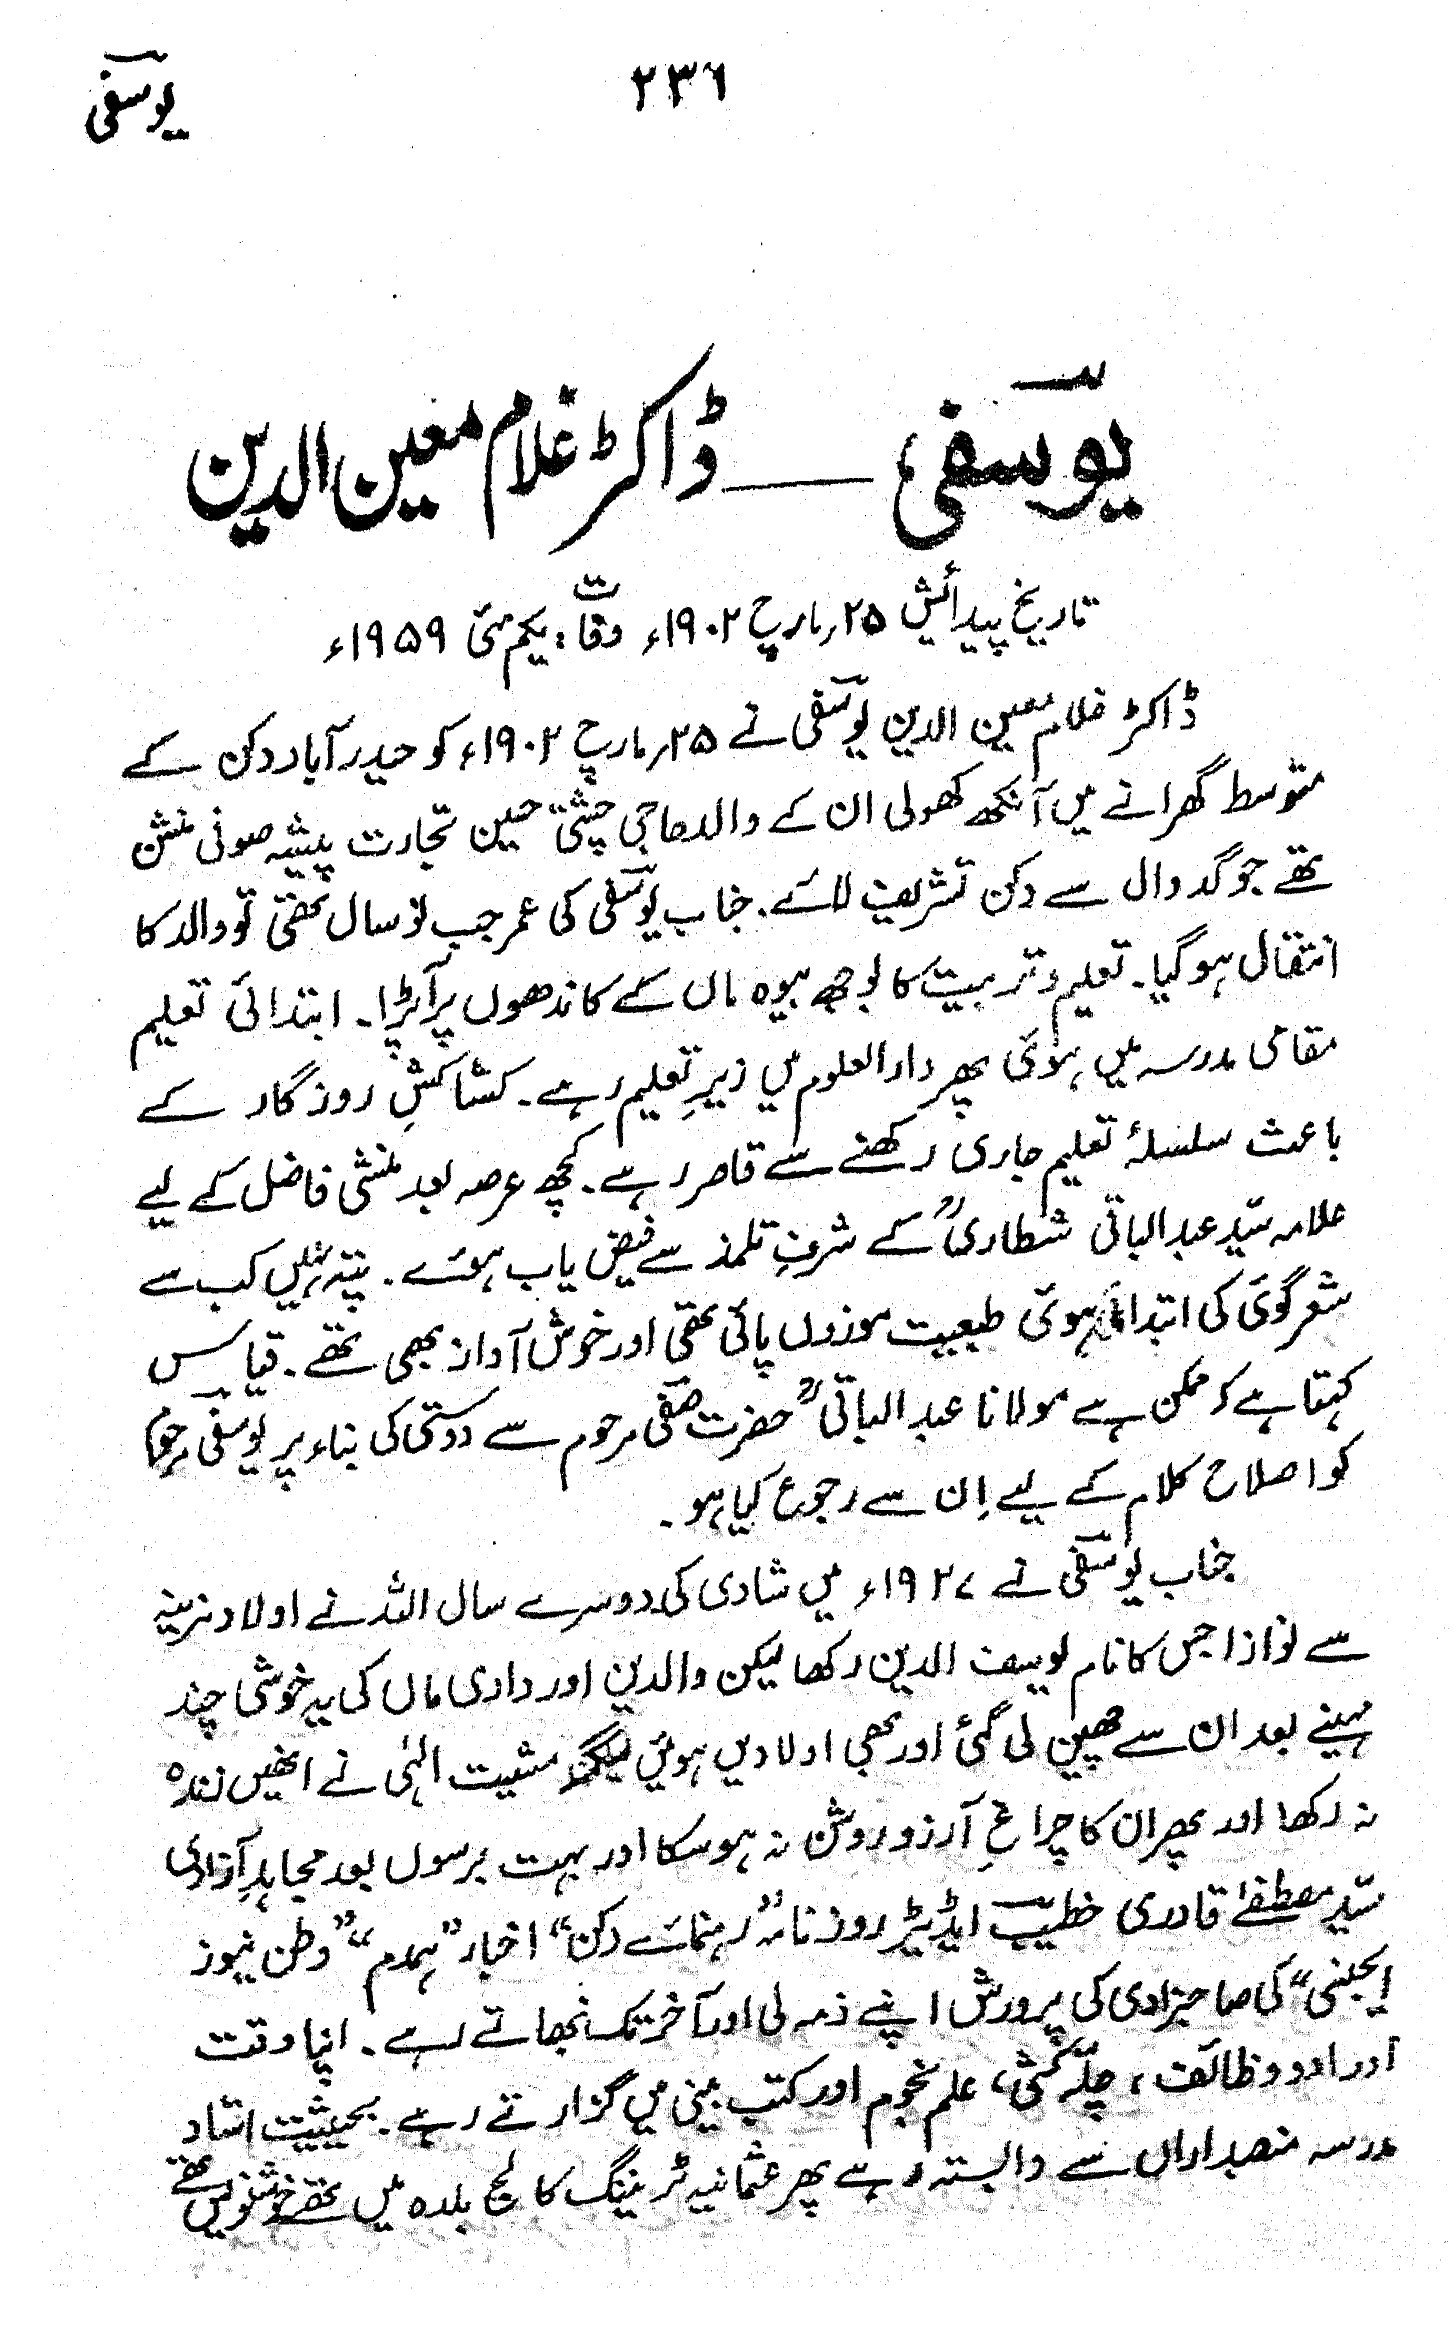 یوسفی
۲۳۶
یوسفی ــــ ڈاکٹر غلام معین الدین
تاریخ پیدائش ۲۵؍مارچ ۱۹۰۲ء وفات: یکم مئی ۱۹۵۹ء
ڈاکٹر غلام معین الدین یوسفی نے ۲۵؍مارچ ۱۹۰۲ء کو حیدرآباد دکن کے
متوسط گھرانے میں آنکھ کھولی ان کے والد حاجی چشتی حسین تجارت پیشہ صوفی منش
تھے جو گدوال سے دکن تشریف لائے۔ جناب یوسفی کی عمر جب نو سال تھی تو والد کا
انتقال ہوگیا۔ تعلیم و تربیت کا بوجھ بیوہ ماں کے کاندھوں پر آپڑا۔ ابتدائی تعلیم
مقامی مدرسہ میں ہوئی پھر دارالعلوم میں زیرِ تعلیم رہے۔ کشاکشِ روزگار کے
باعث سلسلۂ تعلیم جاری رکھنے سے قاصر رہے۔ کچھ عرصہ بعد منشی فاضل کے لیے
علامہ سیّد عبدالباقی شطاریؒ کے شرفِ تلمذ سے فیض یاب ہوئے۔ پتہ نہیں کب سے
شعر گوئی کی ابتدا ہوئی طبیعت موزوں پائی تھی اور خوش آواز بھی تھے۔ قیاس
کہتا ہے کہ ممکن ہے مولانا عبدالباقیؒ حضرت صفی مرحوم سے دوستی کی بناء پر یوسفی مرحوم
کو اصلاح کلام کے لیے اِن سے رجوع کیا ہو۔
جناب یوسفی نے ۱۹۲۷ء میں شادی کی دوسرے سال اللہ نے اولاد نرینہ
سے نوازا جس کا نام یوسف الدین رکھا لیکن والدین اور دادی ماں کی یہ خوشی چند
مہینے بعد ان سے چھین لی گئی اور بھی اولادیں ہوئیں لیکن مشیت الٰہی نے انھیں زندہ
نہ رکھا اور پھر ان کا چراغِ آرزو روشن نہ ہوسکا اور بہت برسوں بعد مجاہدِ آزادی
سیّد مصطفےٰ قادری خطیب ایڈیٹر روزنامہ "رہنمائے دکن" اخبار "ہمدم" "وطن نیوز
ایجنسی" کی صاحبزادی کی پرورش اپنے ذمہ لی اور آخر تک نبھاتے رہے۔ اپنا وقت
اور ادو وظائف، چلّہ کشی، علم نجوم اور کتب بینی میں گزارتے رہے۔ بحیثیت استاد
مدرسہ منصبداراں سے وابستہ رہے پھر عثمانیہ ٹریننگ کالج بلدہ میں تھے خوشنویس تھے